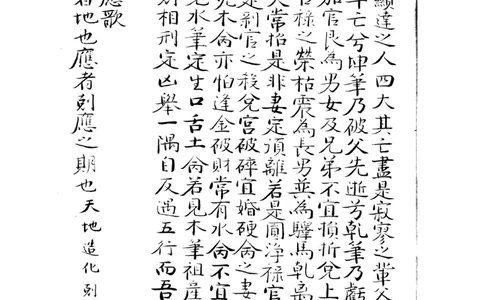 顯達之人四大其亡盡是寂寥之輩父
早亡兮坤筆乃破父先逝兮乾筆乃虧
加官艮為男女及兄弟不宜損折兌上
官祿之榮枯震為長男並為驛馬乾
大常招是非妻定須離若是圓淨祿官
定剝官之殺兌宮破碎宜婚硬命之妻
見木命亦怕逢金破財常有水命不宜
見水筆定生口舌土命若見木筆祖產
別相刑定凶舉一隅自反遇五行而吾
應歌
者地也應者剋應之期也天地造化剋